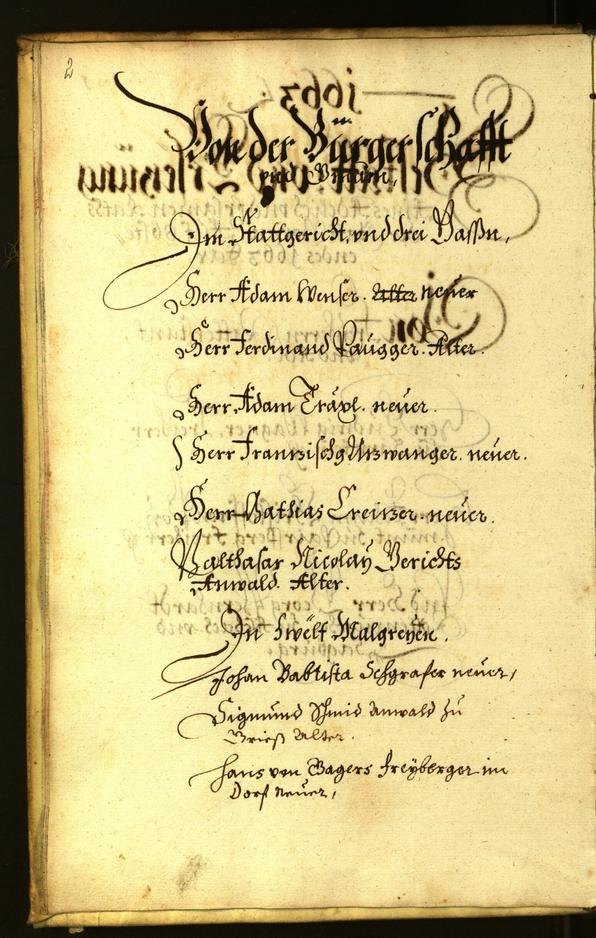 2
Von der Bürgerschafft
Im Stattgericht, vnd drei Gassn,
Herr Adam Wenser. Alter neuer
Herr Ferdinand Paugger. Alter.
Herr Adam Träxl. neuer.
Herr Franzisch Unzwanger. neuer.
Herr Mathias Creizer. neuer.
Balthasar Nicolaÿ Gerichts
Anwald. Alter.
In Zwelf Malgreÿen.
Johan Babtista Schgrafer neuer,
Sigmund Schmid Anwald zu
Grieß Alter.
Hans von Gagers Freyberger im
Dorf neuer,